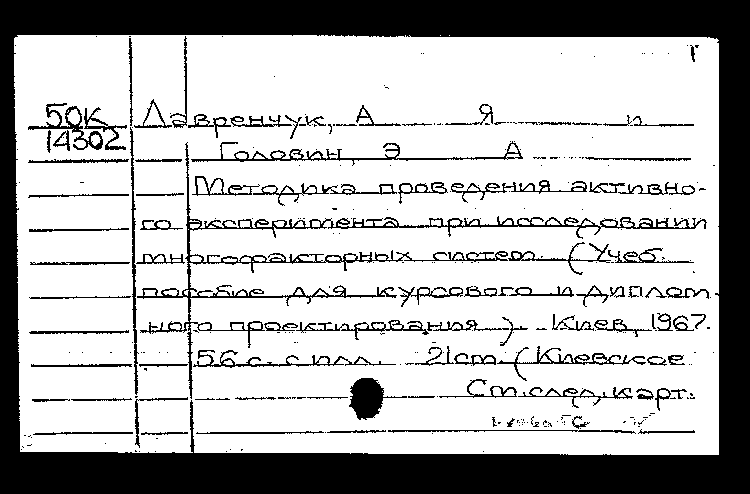 Г
50К Лавренчук, А Я и
14302
Головин, Э А
Методика проведения активно-
го эксперимента при исследовании
многофакторных систем. (Учеб.
пособие для курсового и диплом-
ного проектирования). Киев, 1967.
56 с. с илл. 21 см. (Киевское
См. след. карт.